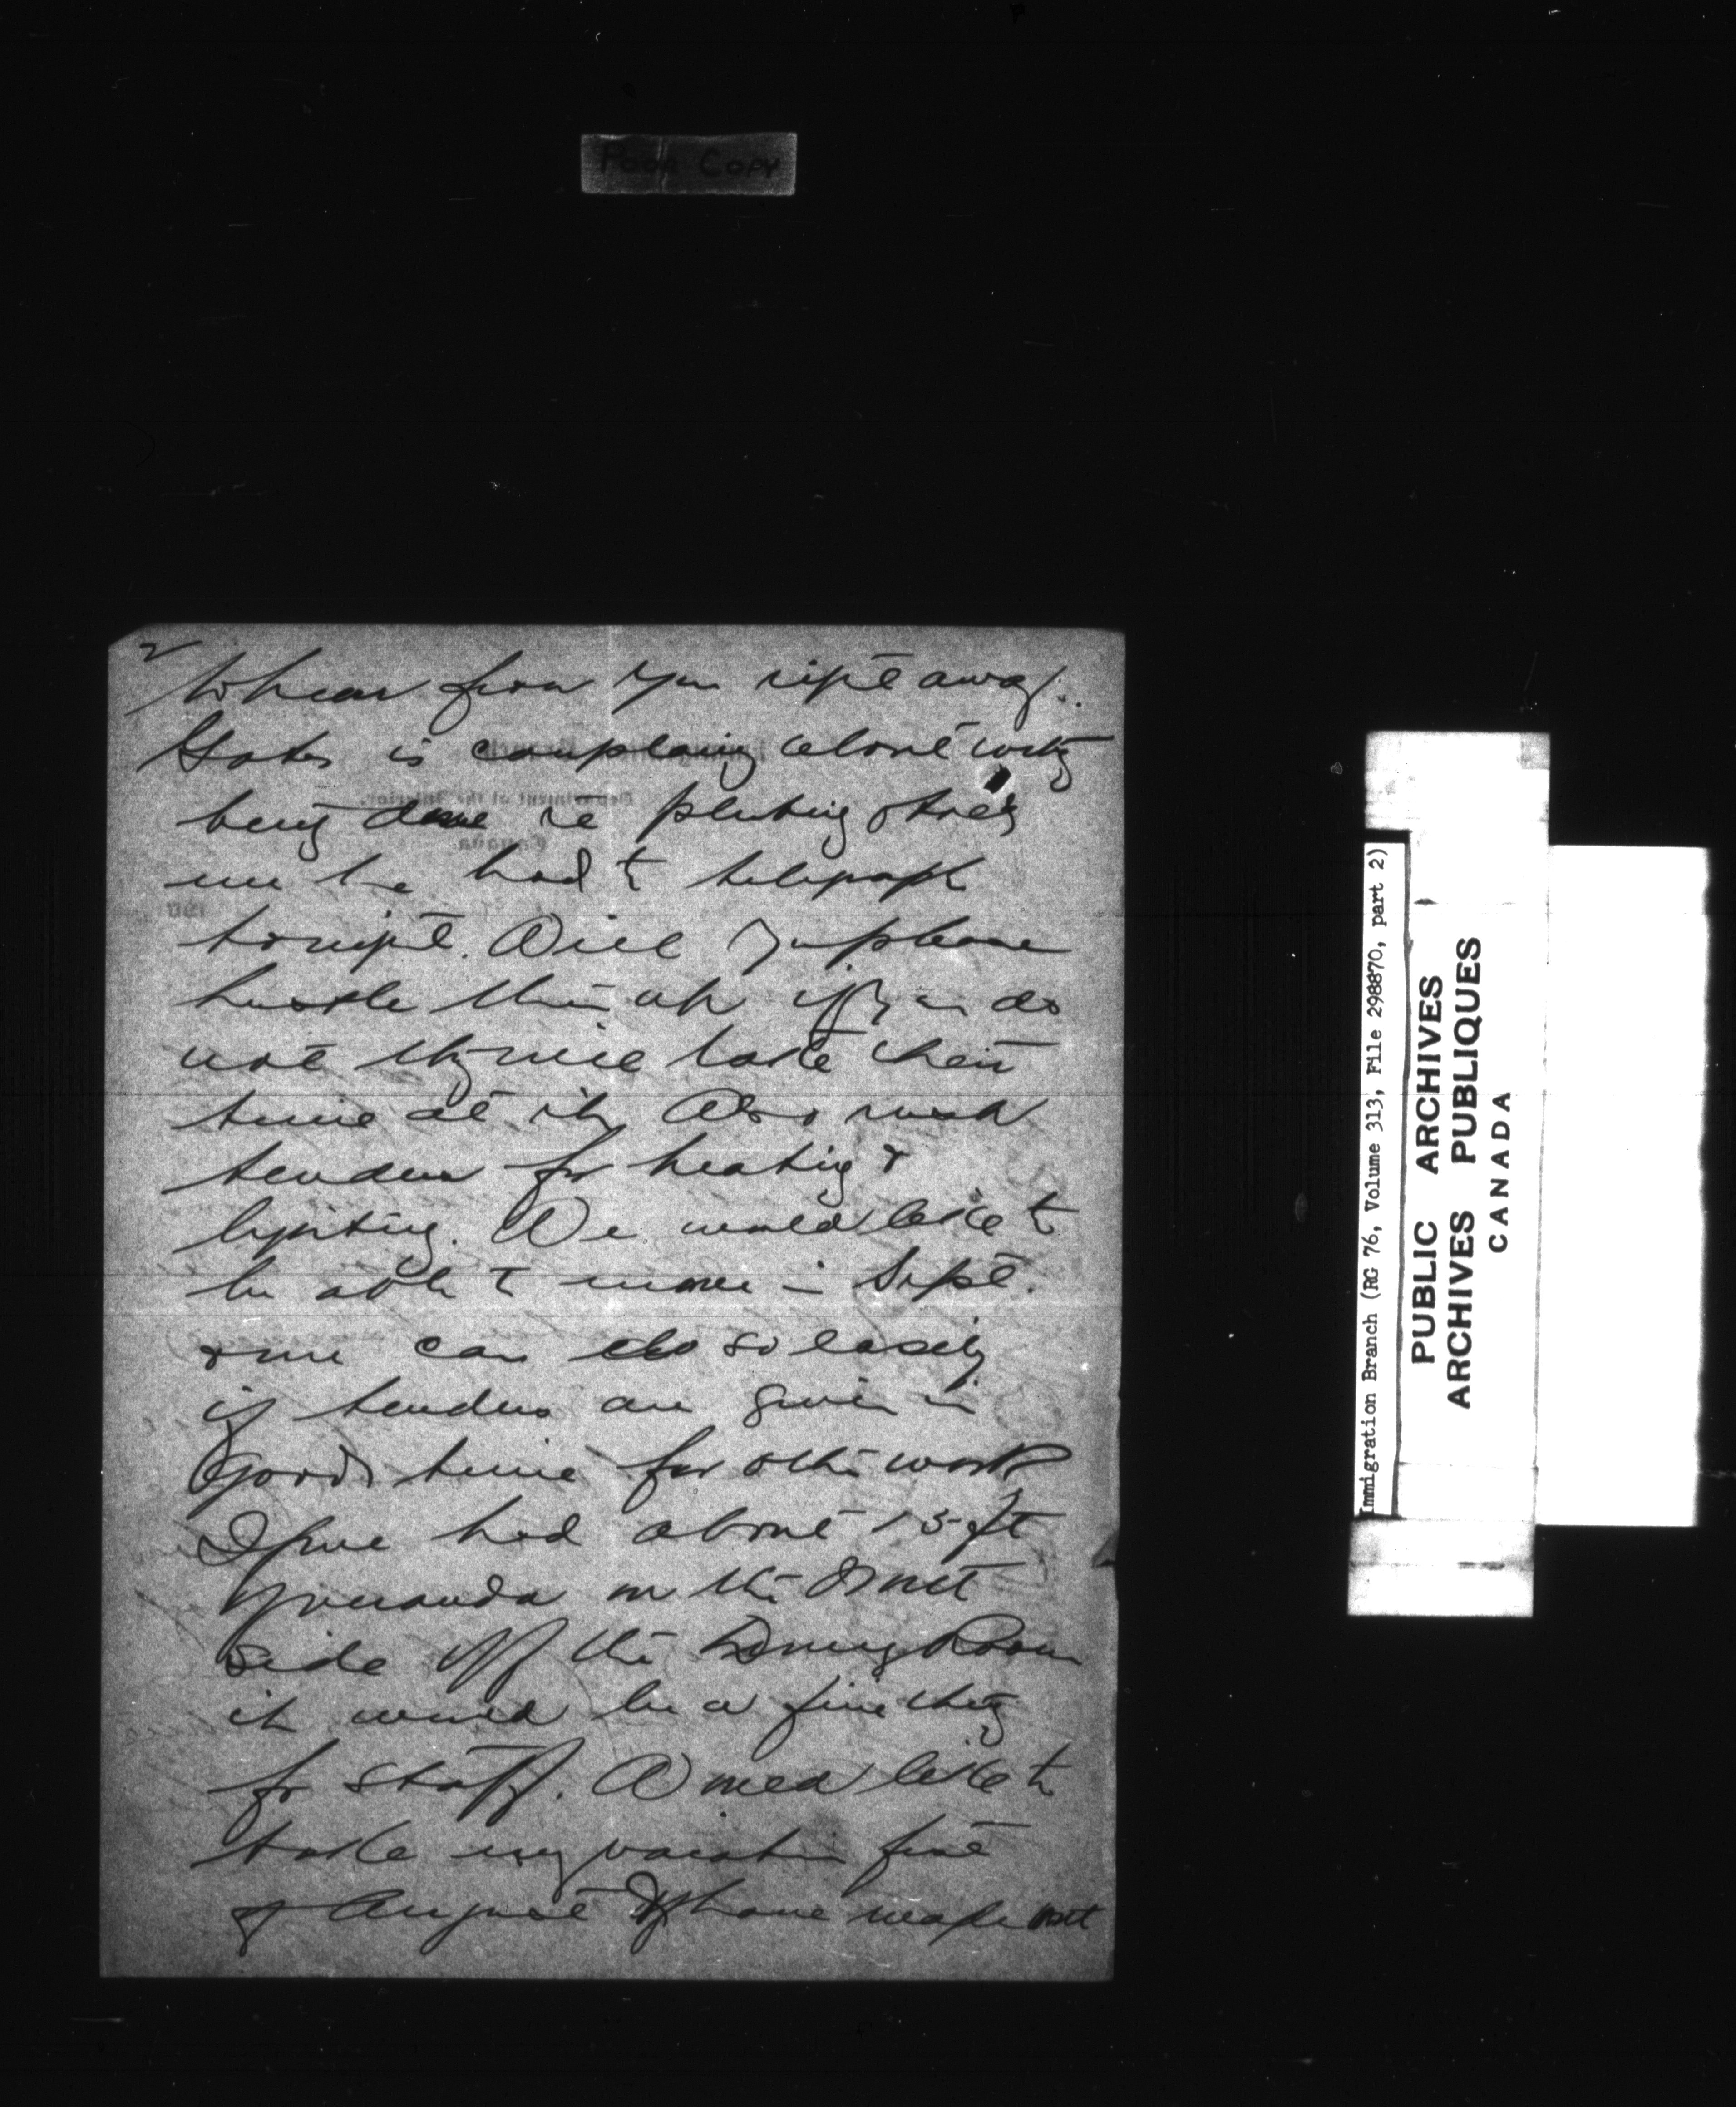 Poor Copy
2
to hear from you right away.
Gates is complaing about
being done re
we had to telegraph
tonight. Will you please
hustle them up if you do
not they will take their
time at it. Also rush
tenders for heating &
lighting. We would like to
be able to move in Sept.
& we can do so easily
if tenders are given in
good time for other work
If we had about 15 ft
veranda on the
side off the Dining Room
it would be a fine thing
for staff. Would like to
take my vacation first
of August
Immigration Branch (RG 76, Volume 313, File 298870, part 2)
PUBLIC ARCHIVES
ARCHIVES PUBLIQUES
CANADA